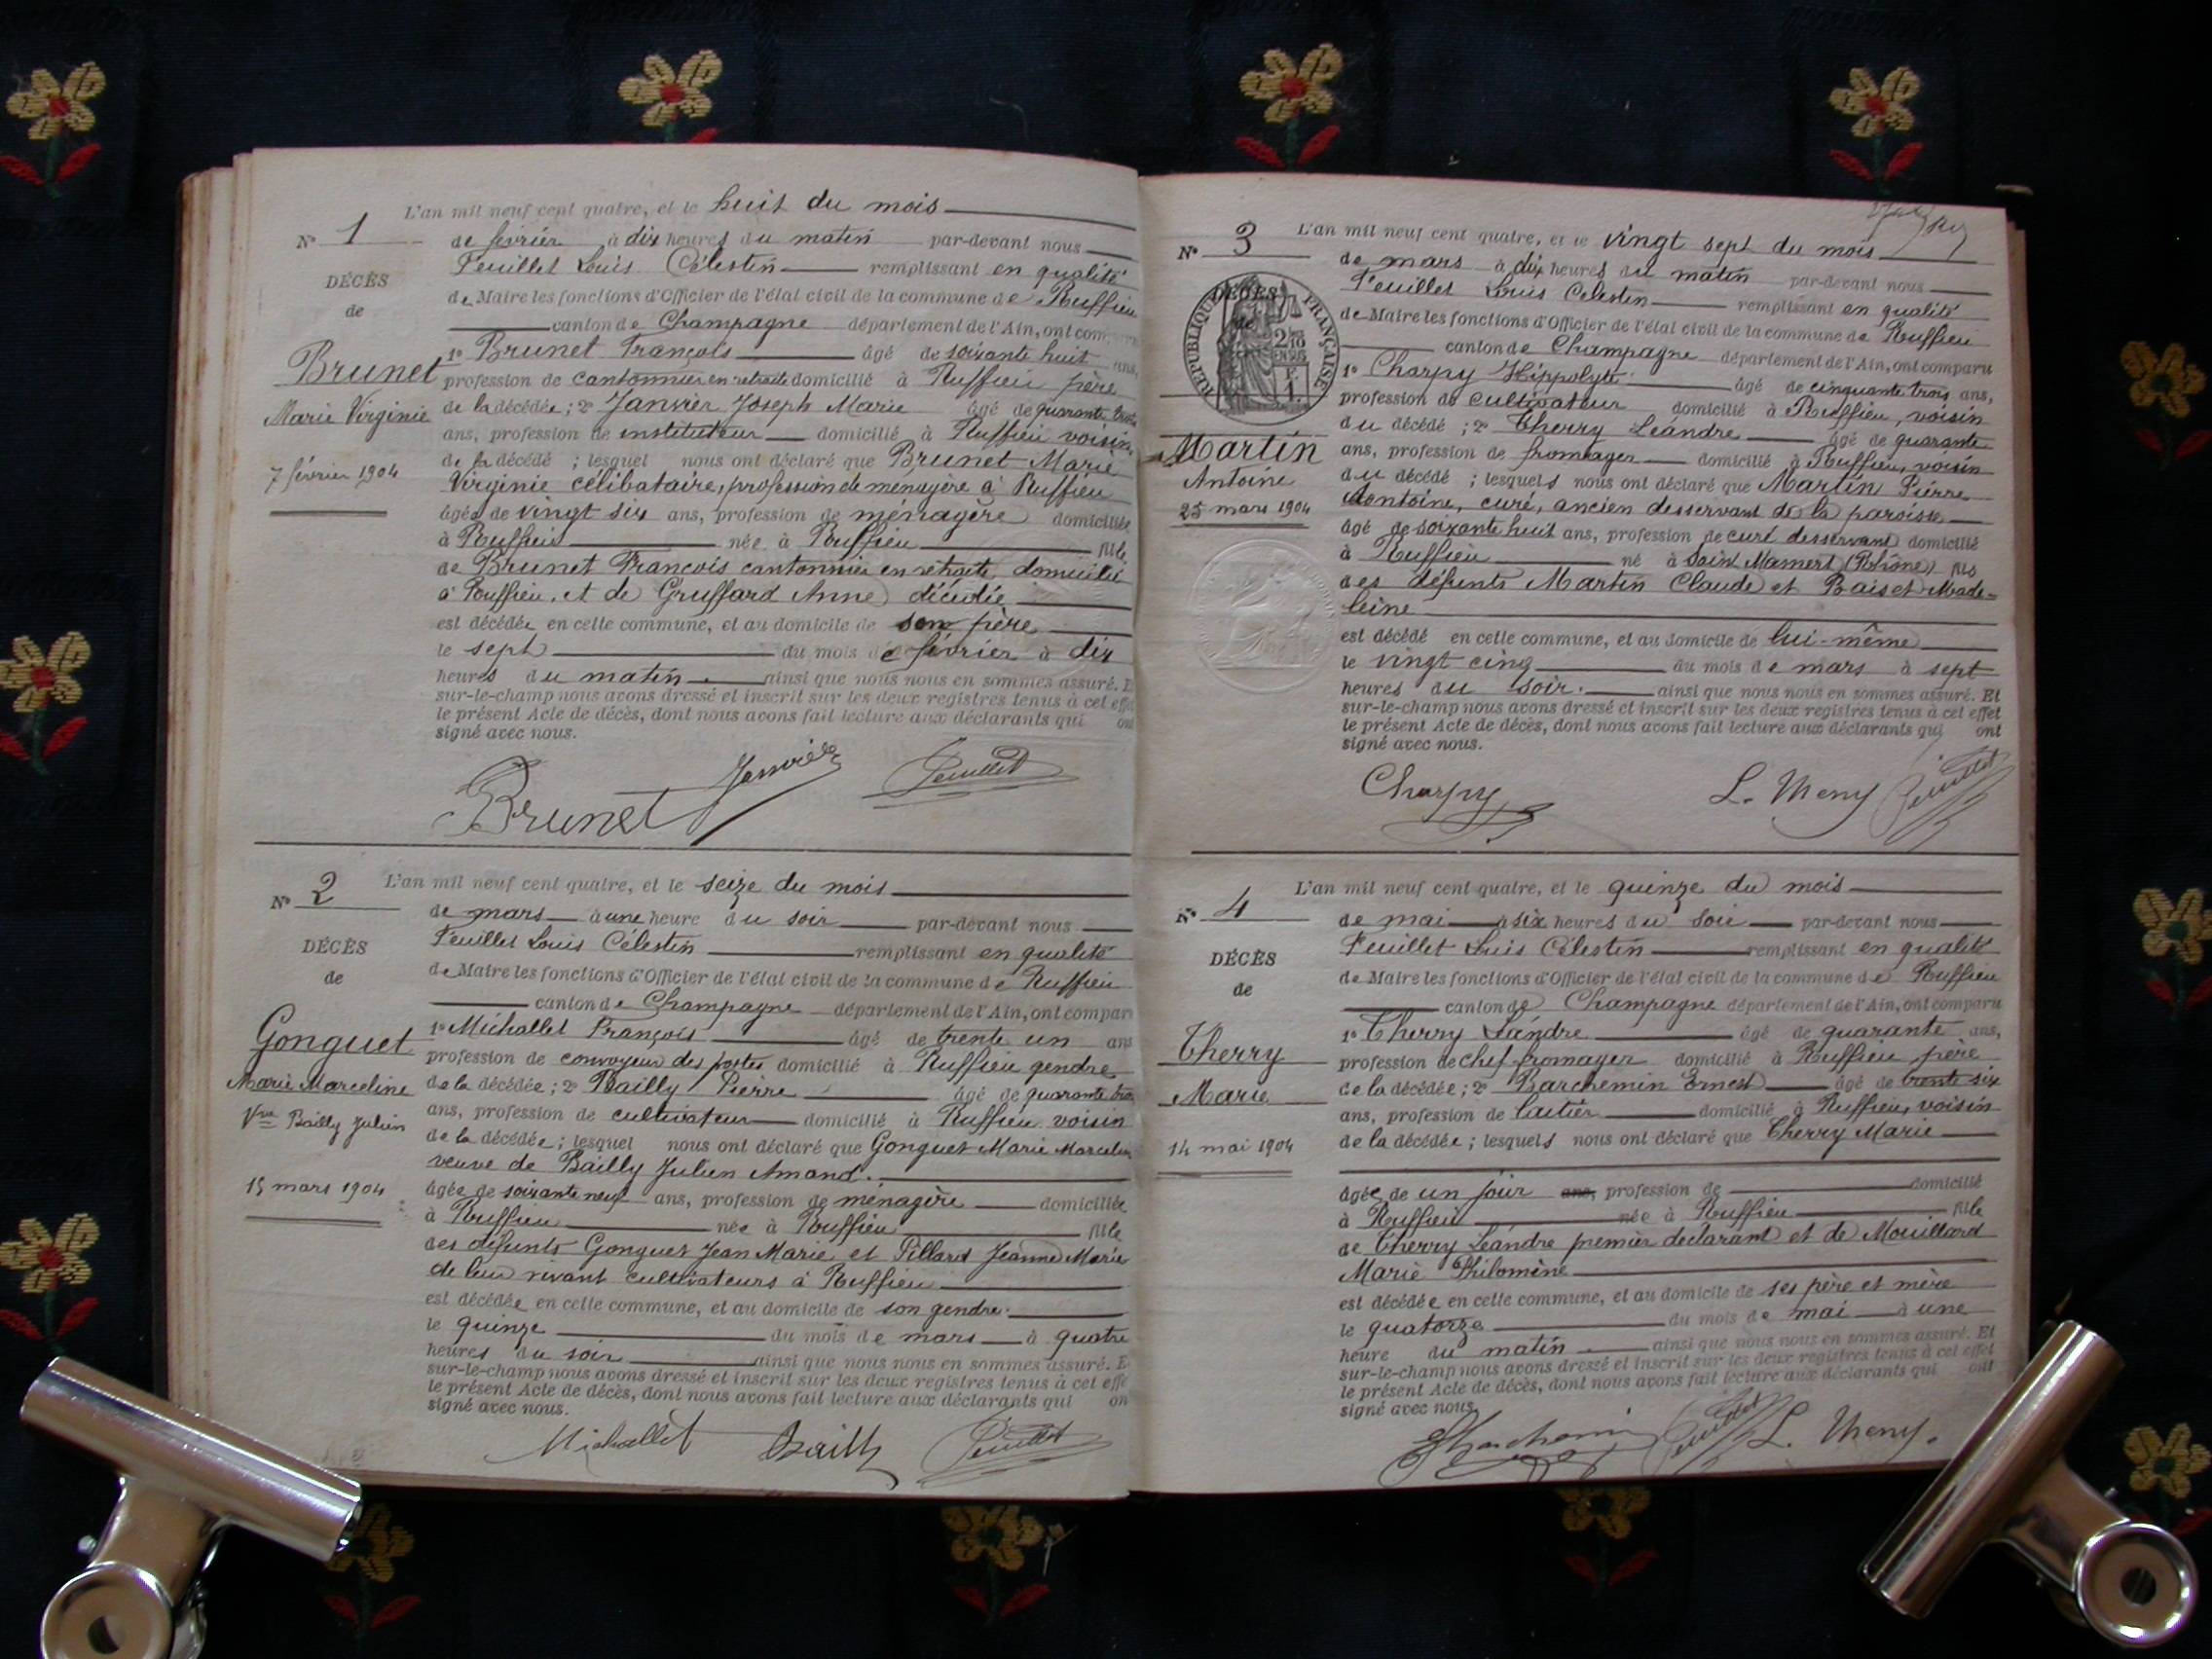 L'an mil neuf cent quatre, et le huit du mois
N° 1
de février à dix heures du matin par-devant nous
Feuillet Louis Célestin remplissant en qualité
DÉCÈS
de Maire les fonctions d'Officier de l'état civil de la commune de Ruffieu
de
canton de Champagne département de l'Ain, ont
Brunet
1° Brunet François âgé de soixante huit ans,
profession de cantonnier en retraite domicilié à Ruffieu père
Marie Virginie
de la décédée; 2° Janvier Joseph Marie âgé de quarante trois
ans, profession de instituteur domicilié à Ruffieu voisin
7 février 1904
de la décédé ; lesquel nous ont déclaré que Brunet Marie
Virginie célibataire, profession de ménagère à Ruffieu
âgée de vingt six ans, profession de ménagère domiciliée
à Ruffieu née à Ruffieu fille
de Brunet François cantonnier en retraite, domicilié
à Ruffieu, et de Gruffard Anne décédée
est décédée en cette commune, et au domicile de son père
le sept du mois de février à dix
heures du matin. ainsi que nous nous en sommes assuré. E
sur-le-champ nous avons dressé et inscrit sur les deux registres tenus à cet effe
le présent Acte de décès, dont nous avons fait lecture aux déclarants qui ont
signé avec nous.
Brunet Janvier Feuillet
L'an mil neuf cent quatre, et le seize du mois
N° 2
de mars à une heure du soir par-devant nous
Feuillet Louis Célestin remplissant en qualité
DÉCÈS
de Maire les fonctions d'Officier de l'état civil de la commune de Ruffieu
de
canton de Champagne département de l'Ain, ont compar
Gonguet
1° Michallet François âgé de trente un ans
profession de convoyeur des postes domicilié à Ruffieu gendre
Marie Marceline
de la décédée; 2° Bailly Pierre âgé de quarante trois
Vve Bailly Julien
ans, profession de cultivateur domicilié à Ruffieu voisin
de la décédée; lesquel nous ont déclaré que Gonguet Marie Marceline
veuve de Bailly Julien Amand.
15 mars 1904
âgée de soixante neuf ans, profession de ménagère domiciliée
à Ruffieu née à Ruffieu fille
des défunts Gonguet Jean Marie et Pillard Jeanne Marie
de leur vivant cultivateurs à Ruffieu
est décédée en cette commune, et au domicile de son gendre.
le quinze du mois de mars à quatre
heures du soir ainsi que nous nous en sommes assuré. E
sur-le-champ nous avons dressé et inscrit sur les deux registres tenus à cet effe
le présent Acte de décès, dont nous avons fait lecture aux déclarants qui on
signé avec nous.
Michallet Bailly Feuillet
L'an mil neuf cent quatre, et le vingt sept du mois
N° 3
de mars à dix heures du matin par-devant nous
Feuillet Louis Célestin remplissant en qualité
DÉCÈS
de
RÉPUBLIQUE FRANÇAISE
de Maire les fonctions d'Officier de l'état civil de la commune de Ruffieu
canton de Champagne département de l'Ain, ont comparu
1° Charpy Hippolyte âgé de cinquante trois ans,
profession de cultivateur domicilié à Ruffieu, voisin
du décédé ; 2° Therry Léandre âgé de quarante
Martin
ans, profession de fromager domicilié à Ruffieu, voisin
Antoine
du décédé ; lesquels nous ont déclaré que Martin Pierre
25 mars 1904
Antoine, curé, ancien desservant de la paroisse
âgé de soixante huit ans, profession de curé desservant domicilié
à Ruffieu né à Saint Mamert (Rhône) fils
des défunts Martin Claude et Baiset Made-
leine
est décédé en cette commune, et au domicile de lui-même
le vingt cinq du mois de mars à sept
heures du soir. ainsi que nous nous en sommes assuré. Et
sur-le-champ nous avons dressé et inscrit sur les deux registres tenus à cet effet
le présent Acte de décès, dont nous avons fait lecture aux déclarants qui ont
signé avec nous.
Charpy L. Theny Feuillet
L'an mil neuf cent quatre, et le quinze du mois
N° 4
de mai à six heures du soir par-devant nous
Feuillet Louis Célestin remplissant en qualité
DÉCÈS
de Maire les fonctions d'Officier de l'état civil de la commune de Ruffieu
de
canton de Champagne département de l'Ain, ont comparu
1° Therry Léandre âgé de quarante ans,
Therry
profession de chef-fromager domicilié à Ruffieu père
Marie
de la décédée; 2° Barchemin Ernest âgé de trente six
ans, profession de laitier domicilié à Ruffieu, voisin
14 mai 1904
de la décédée; lesquels nous ont déclaré que Therry Marie
âgée de un jour ans, profession de domicilié
à Ruffieu née à Ruffieu fille
de Therry Léandre premier déclarant et de Mouillard
Marie Philomène
est décédée en cette commune, et au domicile de ses père et mère
le quatorze du mois de mai à une
heure du matin. ainsi que nous nous en sommes assuré. Et
sur-le-champ nous avons dressé et inscrit sur les deux registres tenus à cet effet
le présent Acte de décès, dont nous avons fait lecture aux déclarants qui ont
signé avec nous.
Feuillet L. Theny.